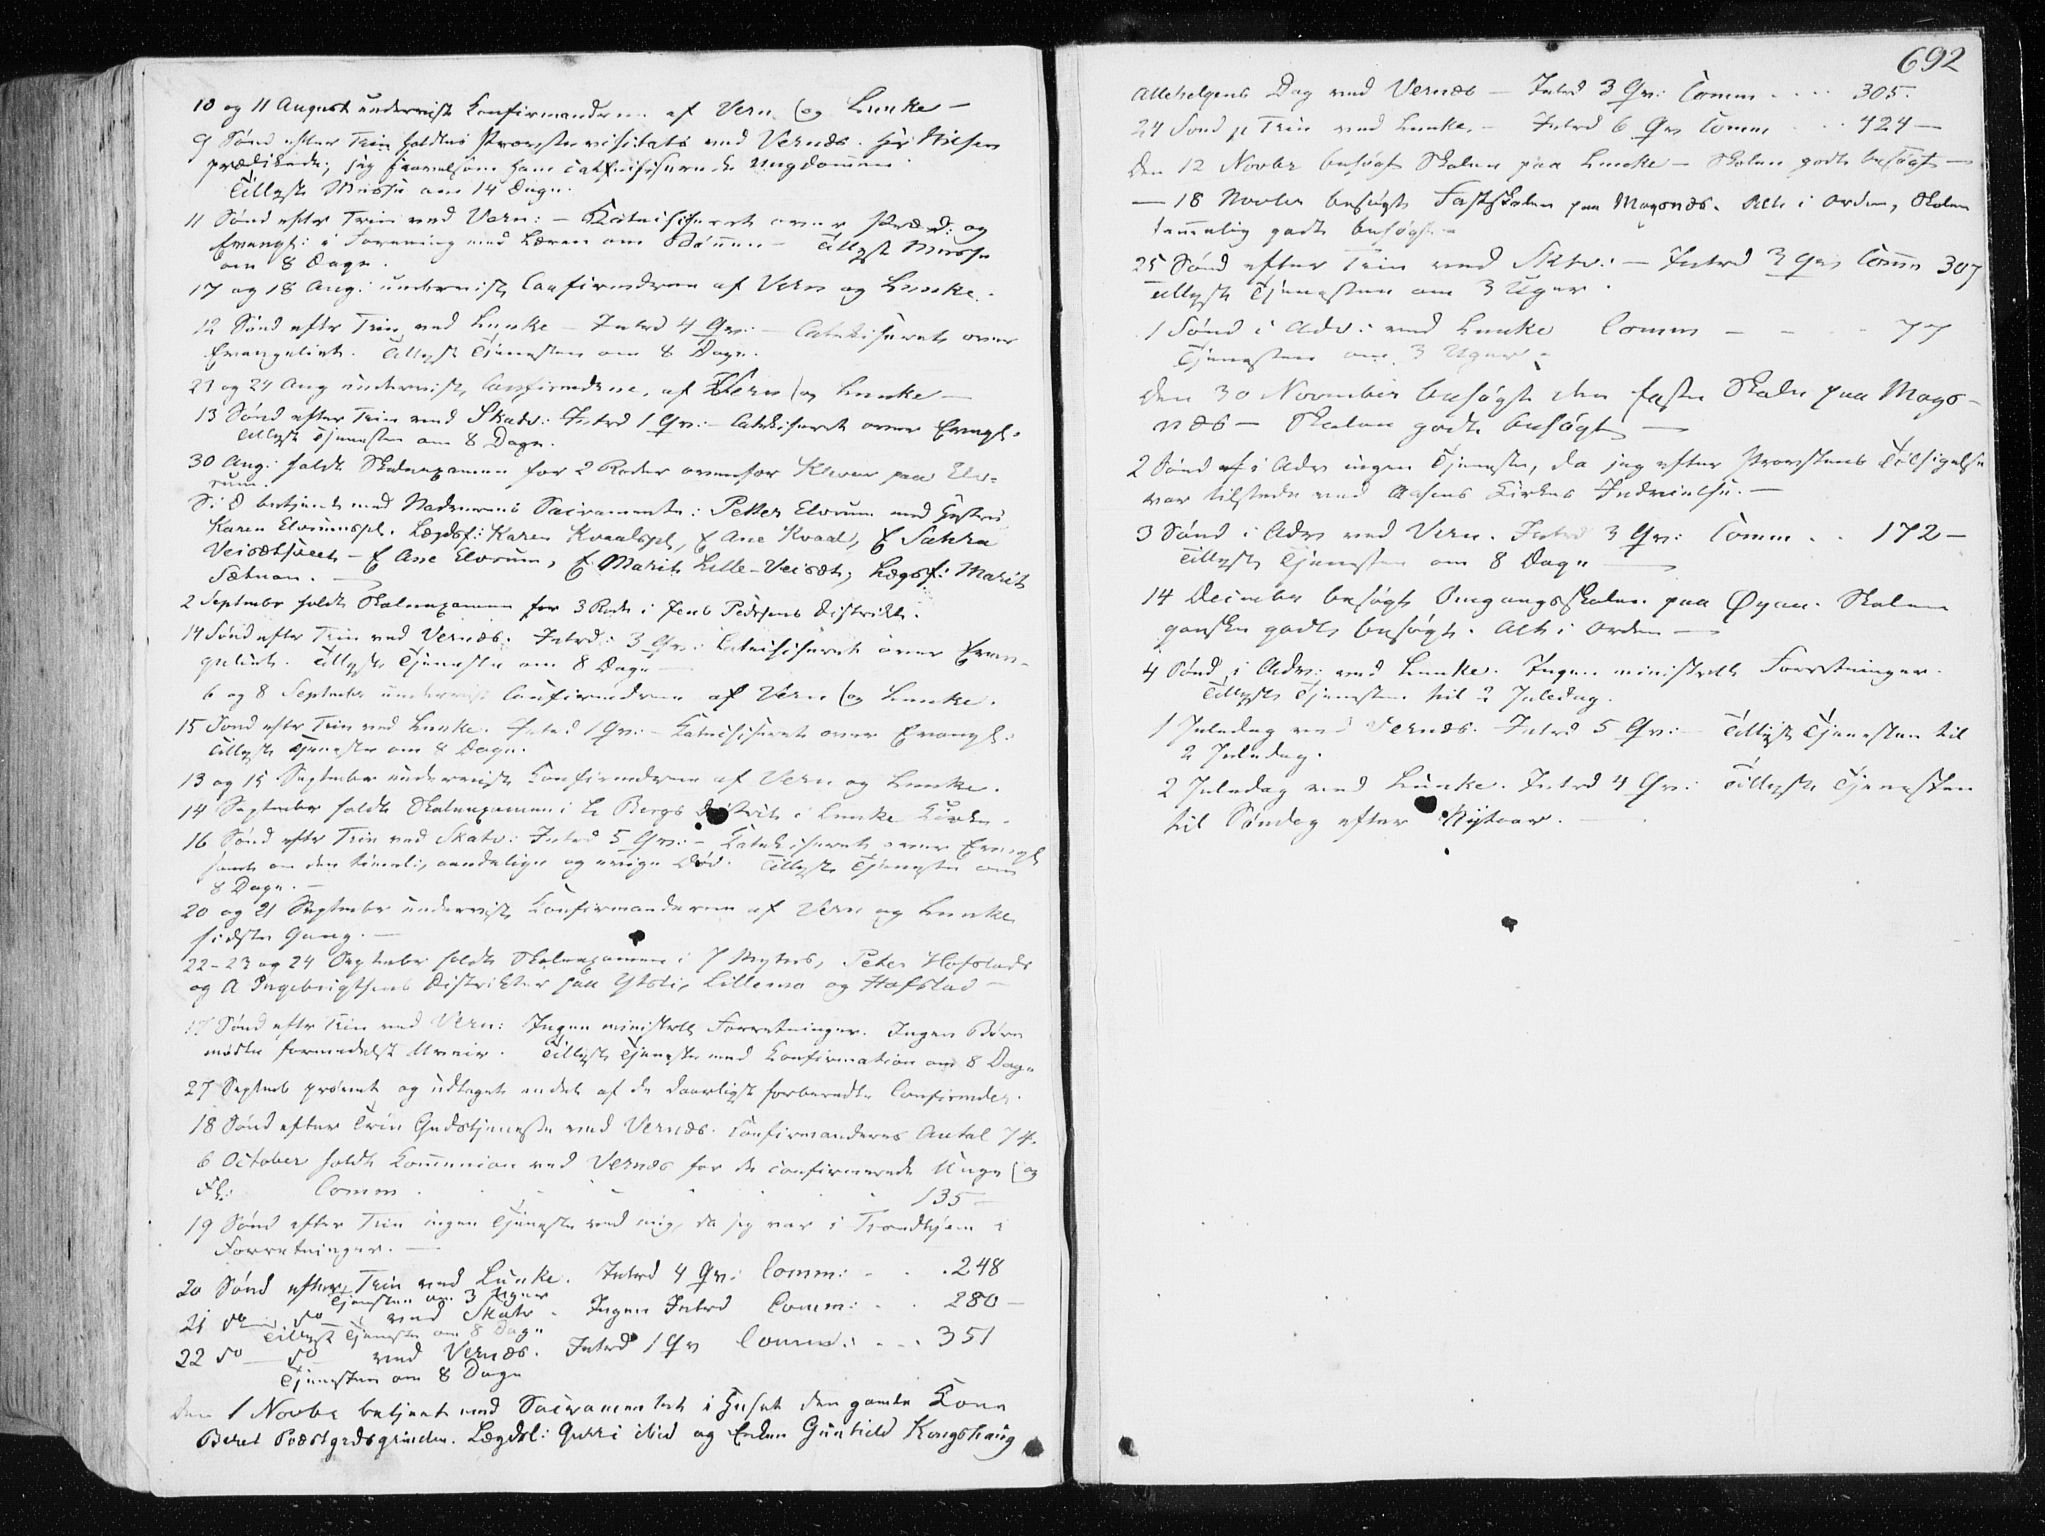 10 og 11 August underviist Confirmanderne af Vern. (og Lunke —
9 Sønd efter Trin holdtes Provstevisitats ved Vernæs. Hr
prædikede; jeg saavelsom han catechiserede Ungdommen
Tillyst Messe om 14 Dage.
11 Sønd efter Trin ved Vern: — Katechiseret over Præd: og
Evangl: i Forening med Læren om Bønnen — Tillyst Messe
om 8 Dage.
17 og 18 Aug: underviist Confirmdrene af Vern og Lunke.
12 Sønd efter Trin ved Lunke — Introd 4 Qv: — Catekiseret over
Evangeliet. Tillyst Tjenesten om 8 Dage.
21 og 24 Aug underviist, Confirmdrene, af Vern (og Lunke —
13 Sønd efter Trin ved Skatv: Introd 1 Qv: — Catekiseret over Evangl.
Tillyst Tjenesten om 8 Dage.
30 Aug: holdt Skoleexamen for 2 Roder ovenfor Kleven paa Elv-
rum.
S: D betjent med Nadverens Sacramente: Petter Elvrum med Hustru
Karen Elvrumspl. Lægdsl: Karen Kvaalspl, E Ane Kvaal, E Sahra
Veisætsveet — E Ane Elvrum, E Marit Lille-Veisæt; Lægdsl: Marit
Sætnan. —
2 September holdt Skoleexamen for 3 Rode i Jens Pedersens Distrikt.
14 Sønd efter Trin ved Vernæs. Introd: 3 Qv: Catechiseret over Evan-
geliet. Tillyst Tjeneste om 8 Dage —
6 og 8 September underviist Confirmdrene af Vern (og Lunke.
15 Sønd efter Trin ved Lunke. Introd 1 Qv: — Catechiseret over Evangl:
Tillyst Tjeneste om 8 Dage.
13 og 15 September underviist Confirmdrene af Vern og Lunke.
14 September holdt Skoleexamen i L Bergs Distrikt i Lunke Kirke.
16 Sønd efter Trin ved Skatv: Introd 5 Qv: — Catekiseret over Evangl
samt om den timeli, aandelige og evige Død. Tillyst Tjeneste om
8 Dage. —
20 og 21 September underviist, Confirmanderne af Vern og Lunke
sidste Gang. —
22-23 og 24 September holdt Skoleexamen i Peter Hofstads
og A Ingebrigtsens Distrikter paa Ytsti, Lillemo og Hofstad —
17 Sønd efter Trin ved Vern: Ingen ministrell Forretninger. Ingen Børn
mødte formedelst Uveir. Tillyst Tjeneste med Confirmation om 8 Dage
27 Septemb prøvet og udtaget endel af de daarligst forberedte Confirmder.
18 Sønd efter Trin Gudstjeneste ved Vernæs. Confirmanderes Antal 74.
6 October holdt Communion ved Vernæs for de confirmerede Unge (og
Fl: Comm . 135 —
19 Sønd efter Trin ingen Tjeneste ved mig, da jeg var i Trondhjem i
Forretninger. —
20 Sønd efter Trin ved Lunke. Introd 4 Qv: Comm: . . . 248
Tjenesten om 3 Uger
21 do — do — ved Skatv — Ingen Introd Comm: . . 280 —
Tillyst Tjeneste om 8 Dage
22 do — do — ved Vernæs. Introd 1 Qv Comm: . . . 351
Tjenesten om 8 Dage
Den 1 Novbr betjent med Sacramentet i Huset den gamle Kone
Beret Præstgrdsgrinden. Lægdsl: Guri ibid og Enken Gunhild Kongshaug
692
Allehelgens Dag ved Vernæs — Introd 3 Qv: Comm . . . . 305.
24 Sønd p Trin ved Lunke. — Introd 6 Qv Comm . . . 424 —
Den 12 Novbr besøgt Skolen paa Lunke — Skolen godt besøgt —
— 18 Novbr besøgt Fastskolen paa Mægsnæs. Alt i Orden, Skolen
temmelig godt besøgt —
25 Sønd efter Trin ved Sktv: — Introd 3 Qv; Comm 307
Tillyst Tjenesten om 3 Uger.
1 Sønd i Adv: ved Lunke Comm — — — 77
Tjenesten om 3 Uger —
Den 30 November besøgt den faste Skole paa Mægs-
næs — Skolen godt besøgt —
2 Sønd i Adv ingen Tjeneste, da jeg efter Provstens Tilsigelse
var tilstede ved Aasens Kirkes Indvielse. —
3 Sønd i Adv ved Vern. Introd 3 Qv: Comm . . 172 —
Tillyst Tjenesten om 8 Dage —
14 December besøgt Omgangsskolen paa Øyan. Skolen
ganske godt, besøgt. Alt i Orden —
4 Sønd i Adv; ved Lunke. Ingen ministrelle Forretninger.
Tillyst Tjenesten til 2 Juledag.
1 Juledag ved Vernæs. Introd 5 Qv: — Tillyst Tjenesten til
2 Juledag.
2 Juledag ved Lunke. Introd 4 Qv: Tillyst Tjenesten
til Søndag efter Nytaar. —